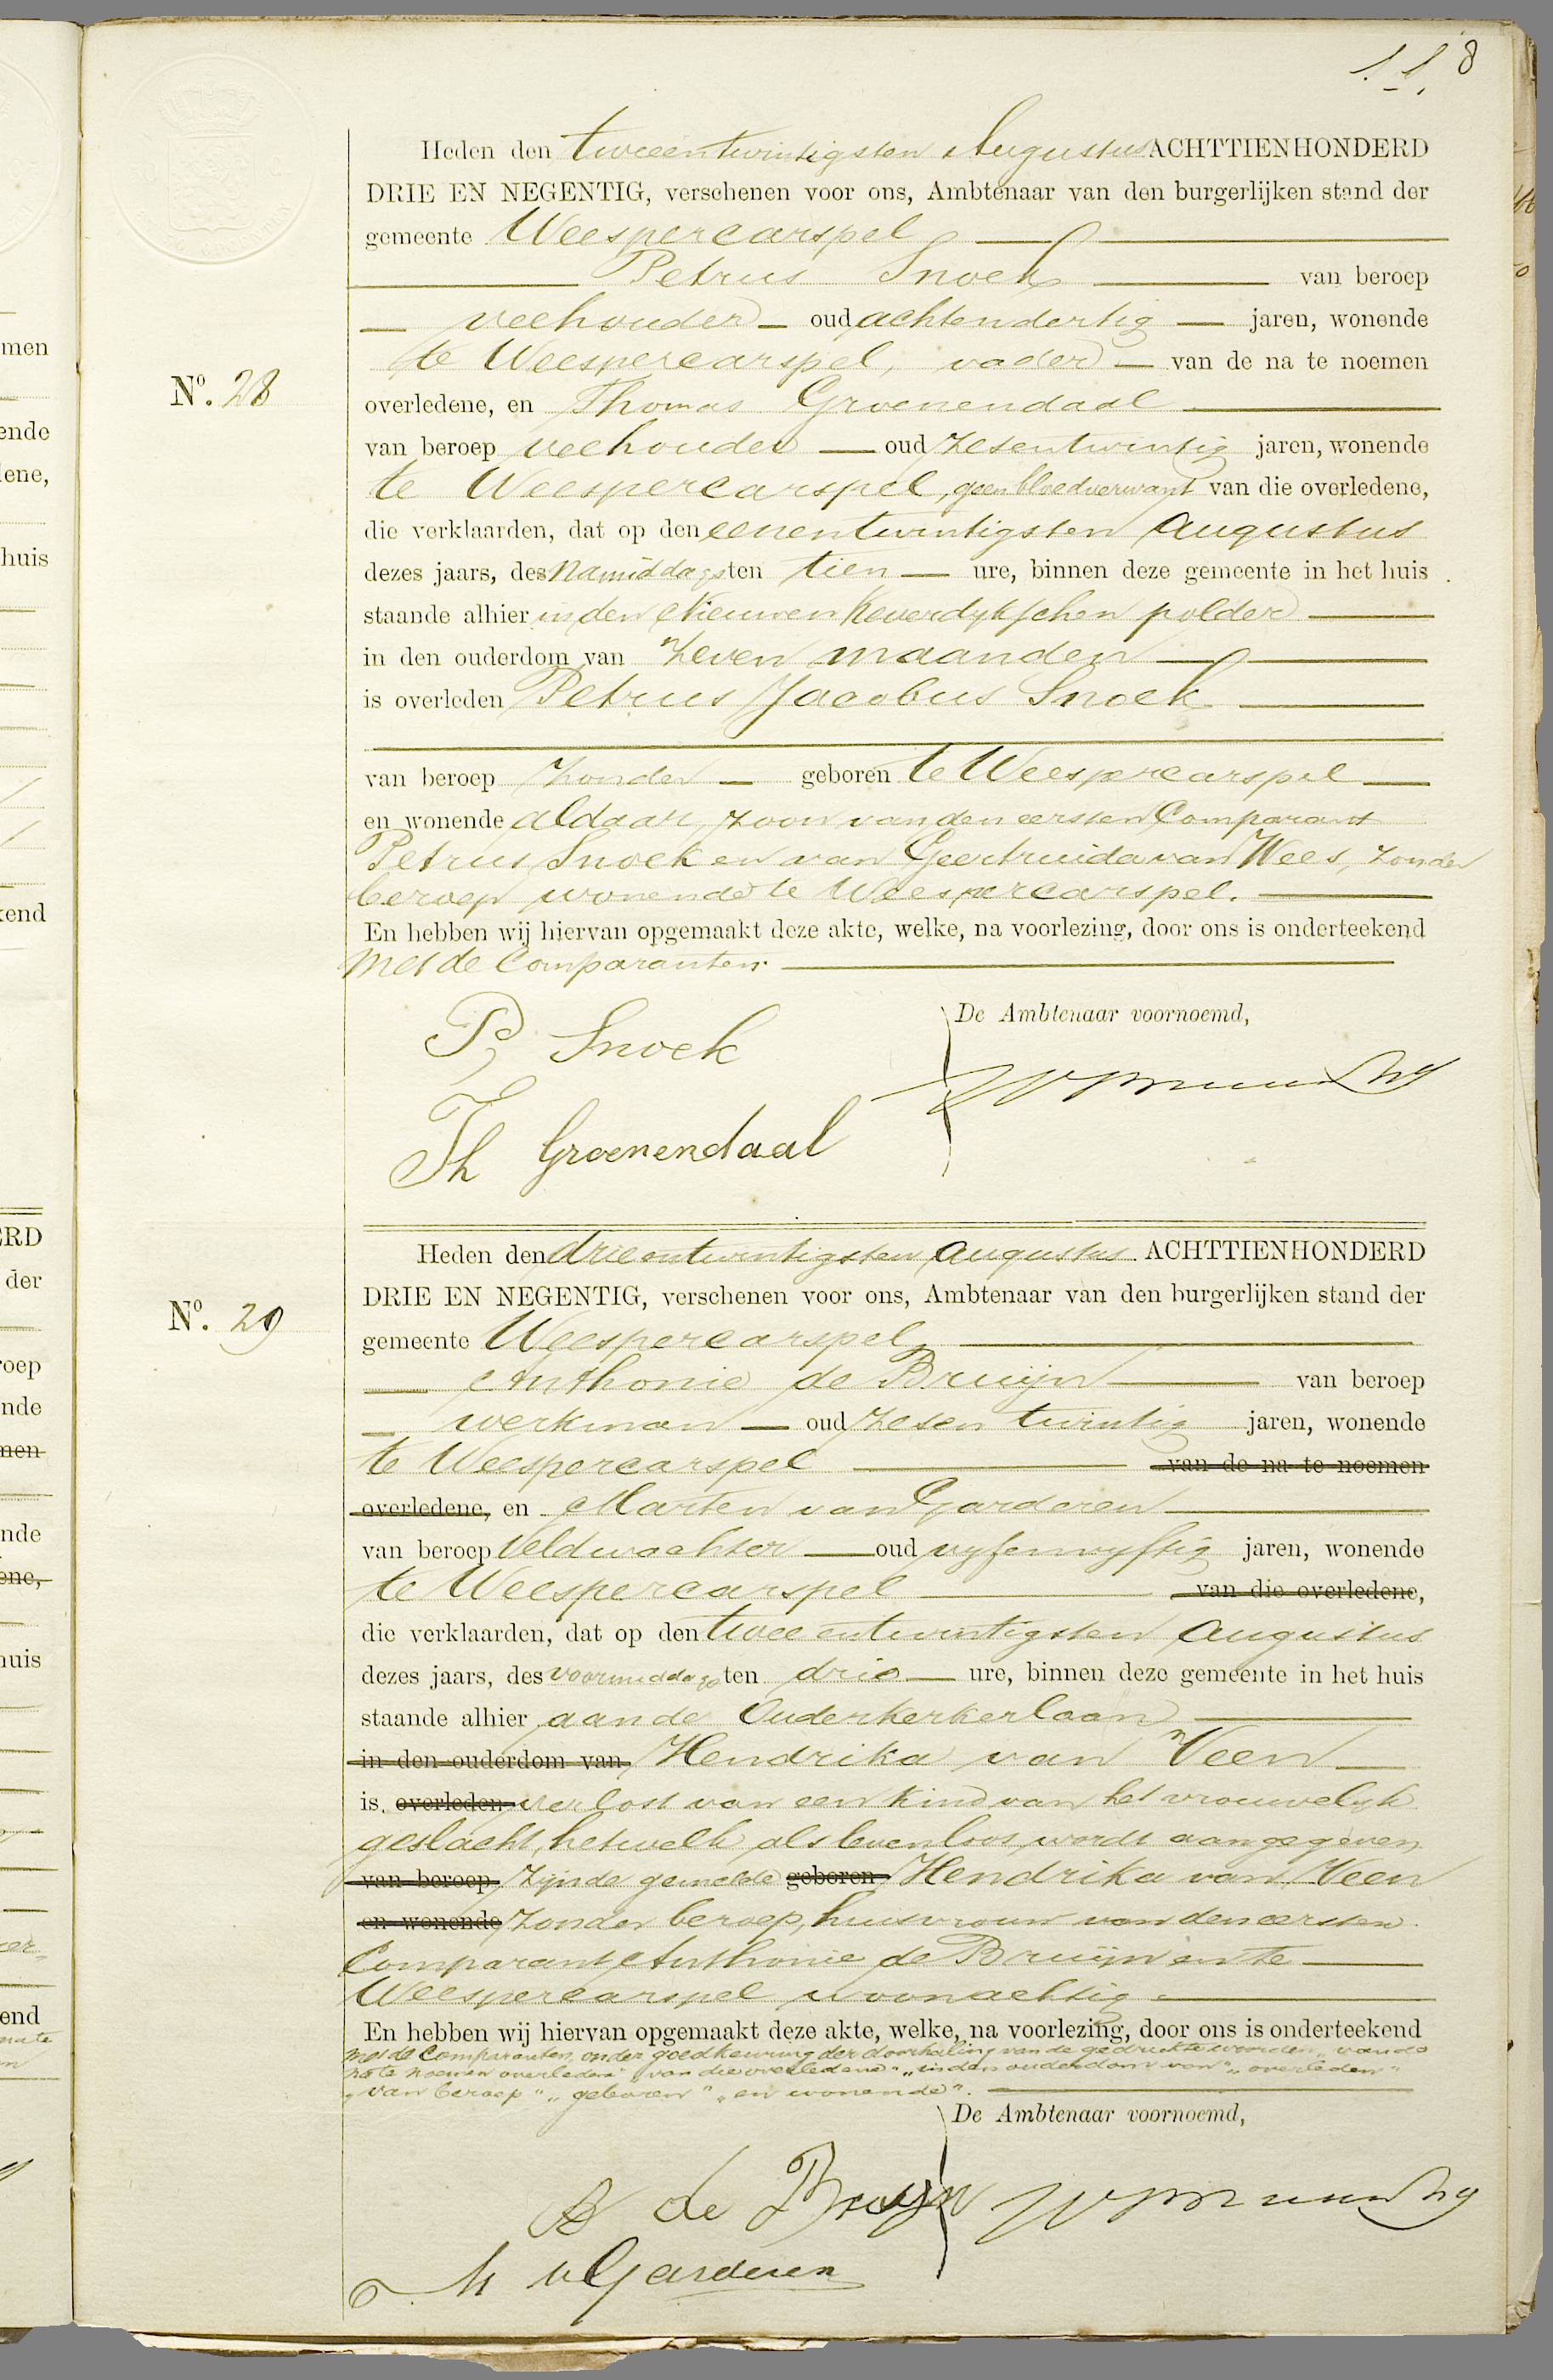 8
Heden den tweeentwintigsten Augustus ACHTTIENHONDERD
DRIE EN NEGENTIG, verschenen voor ons, Ambtenaar van den burgerlijken stand der
gemeente Weespercarspel
Petrus Snoek van beroep
veehouder oud achtendertig jaren, wonende
te Weespercarspel, vader van de na te noemen
No. 28
overledene, en Thomas Groenendaal
van beroep veehouder oud zesentwintig jaren, wonende
te Weespercarspel, geen bloedverwant van die overledene,
die verklaarden, dat op den eenentwintigsten Augustus
dezes jaars, des Namiddags ten tien ure, binnen deze gemeente in het huis
staande alhier in den Nieuwen Keverdykschen polder
in den ouderdom van zeven maanden
is overleden Petrus Jacobus Snoek
van beroep zonder geboren te Weespercarspel
en wonende aldaar, zoon van den eersten Comparant
Petrus Snoek en van Geertruida van Wees, zonder
beroep wonende te Weespercarspel.
En hebben wij hiervan opgemaakt deze akte, welke, na voorlezing, door ons is onderteekend
met de Comparanten.
De Ambtenaar voornoemd,
P. Snoek
Th Groenendaal
Heden den drieentwintigsten Augustus ACHTTIENHONDERD
DRIE EN NEGENTIG, verschenen voor ons, Ambtenaar van den burgerlijken stand der
No. 29
gemeente Weespercarspel
Anthonie de Bruijn van beroep
werkman oud zesentwintig jaren, wonende
te Weespercarspel van de na te noemen
overledene, en Marten van Garderen
van beroep Veldwachter oud vyfenvyftig jaren, wonende
te Weespercarspel van die overledene,
die verklaarden, dat op den tweeentwintigsten Augustus
dezes jaars, des voormiddags ten drie ure, binnen deze gemeente in het huis
staande alhier aan de Ouderkerkerlaan
in den ouderdom van Hendrika van Veen
is overleden verlost van een kind van het vrouwelyk
geslacht, hetwelk als levenloos wordt aangegeven,
van beroep zijnde gemelde geboren Hendrika van Veen
en wonende zonder beroep, huisvrouw van den eersten
Comparant Anthonie de Bruijn en te
Weespercarspel woonachtig.
En hebben wij hiervan opgemaakt deze akte, welke, na voorlezing, door ons is onderteekend
met de Comparanten, onder goedkeuring der doorhaling van de gedrukte woorden "van de
na te noemen overledene" "van die overledene" "in den ouderdom van" "overleden"
"van beroep" "geboren" "en wonende".
De Ambtenaar voornoemd,
A de Bruijn
M v Garderen